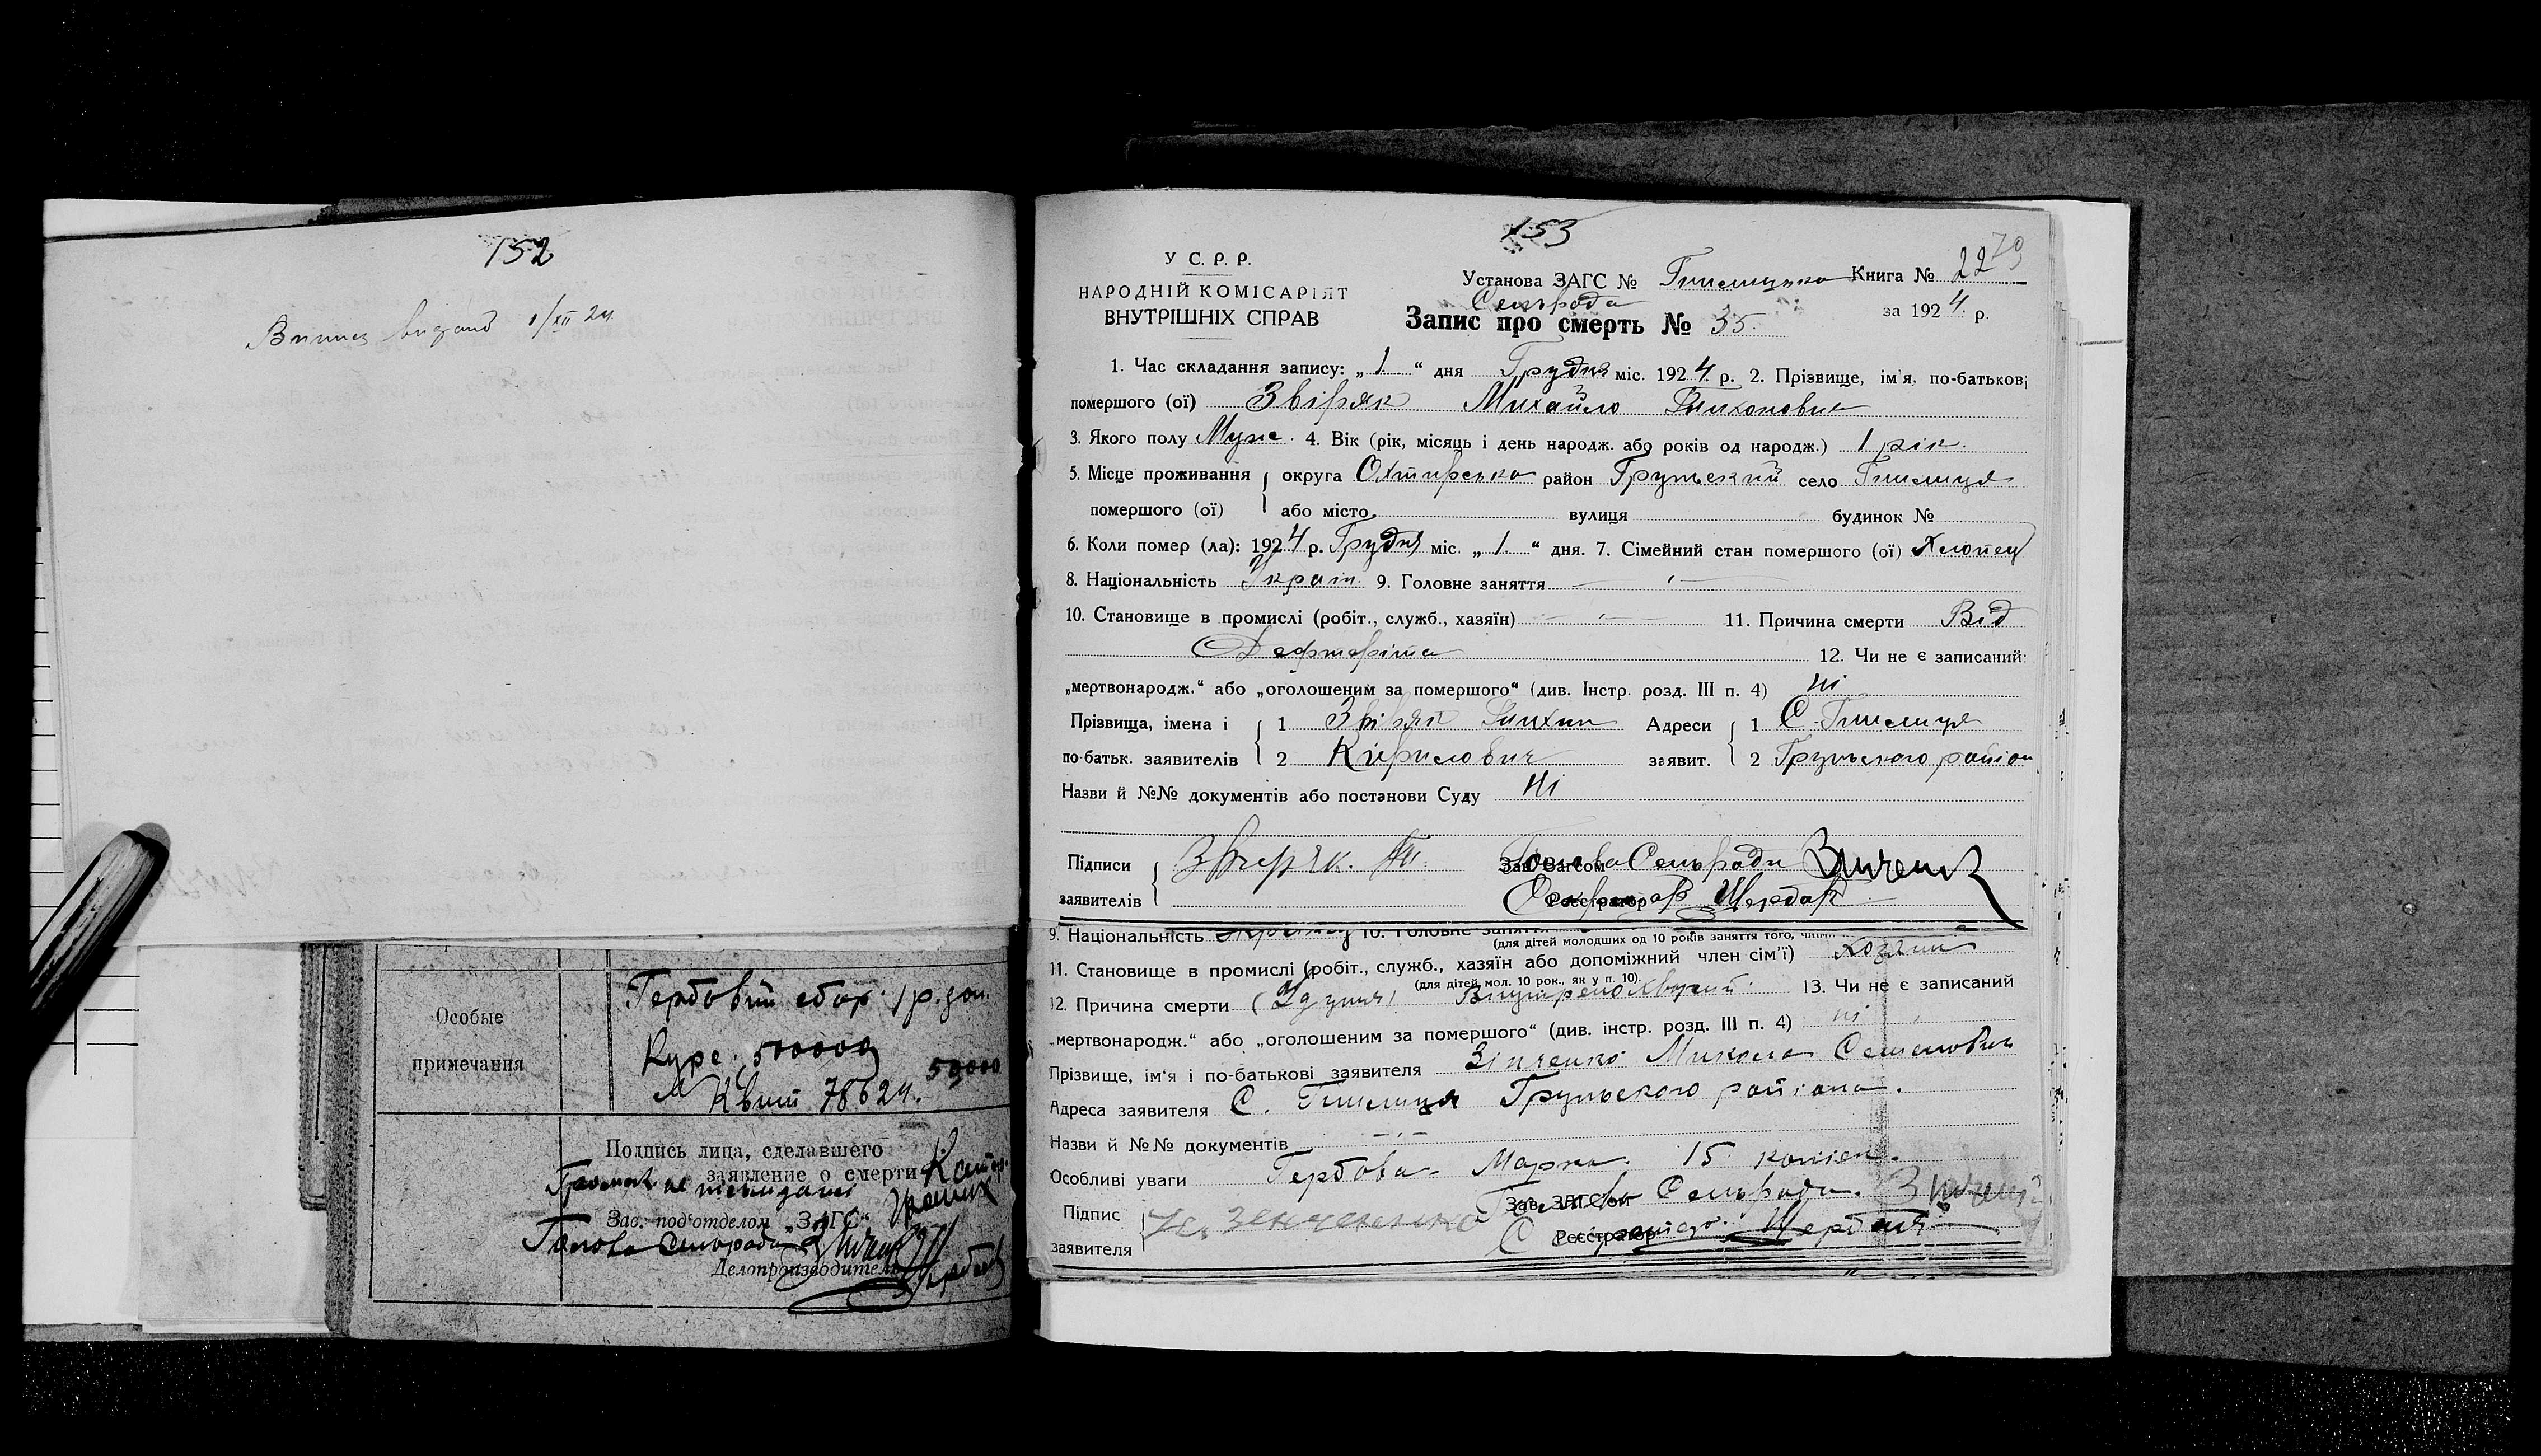 152
1/XII 24
Особые
примечания
Гербовий сбор 1 р. зол.
Курс 500000
50000
Квит 78624.
Подпись лица, сделавшего
заявление о смерти
Зав. под'отделом „ЗАГС“
Голова Сельради
Делопроизводитель
153
70
У С. Р. Р.
НАРОДНІЙ КОМІСАРІЯТ
ВНУТРІШНІХ СПРАВ
Установа ЗАГС № Книга № 22
Сельрада
Запис про смерть № 35. за 1924 р.
1. Час складання запису: „1“ дня Грудня міс. 1924 р. 2. Прізвище, ім'я, по-батькові
помершого (ої) Звіряк Михайло Тихонович
3. Якого полу Муже. 4. Вік (рік, місяць і день народж. або років од народж.) 1 рік.
5. Місце проживання округа Охтирська район Груньский село Гнилиця
помершого (ої) або місто вулиця будинок №
6. Коли помер (ла): 1924 р. Грудня міс. „1.“ дня. 7. Сімейний стан помершого (ої) Хлопец
8. Національність Украін. 9. Головне заняття
10. Становище в промислі (робіт., служб., хазяїн) 11. Причина смерти Від
Дефтеріта 12. Чи не є записаний:
„мертвонародж.“ або „оголошеним за помершого“ (див. Інстр. розд. III п. 4) Ні
Прізвища, імена і 1 Звіряк Тихин Адреси 1 С. Гнилиця
по-батьк. заявителів 2 Кирилович заявит. 2 Груньского район
Назви й №№ документів або постанови Суду Ні
Підписи Звиряк. Ти. Зав. Загсом Голова Сельради
заявителів Реєстратор Секретар Щербак
9. Національність 10. Головне заняття
(для дітей молодших од 10 років заняття того,
11. Становище в промислі (робіт., служб., хазяїн або допоміжний член сім'ї) Хозяин
(для дітей мол. 10 рок., як у п. 10).
12. Причина смерти 13. Чи не є записаний
„мертвонародж.“ або „оголошеним за помершого“ (див. інстр. розд. III п. 4) ні
Прізвище, ім'я і по-батькові заявителя Зінченко Микола Семенович
Адреса заявителя С. Гнилиця Груньского районa.
Назви й №№ документів
Особливі уваги Гербова Марка 15 копієк.
Підпис Зав. ЗАГСом Голова Сельради.
заявителя Реєстратор Щербак